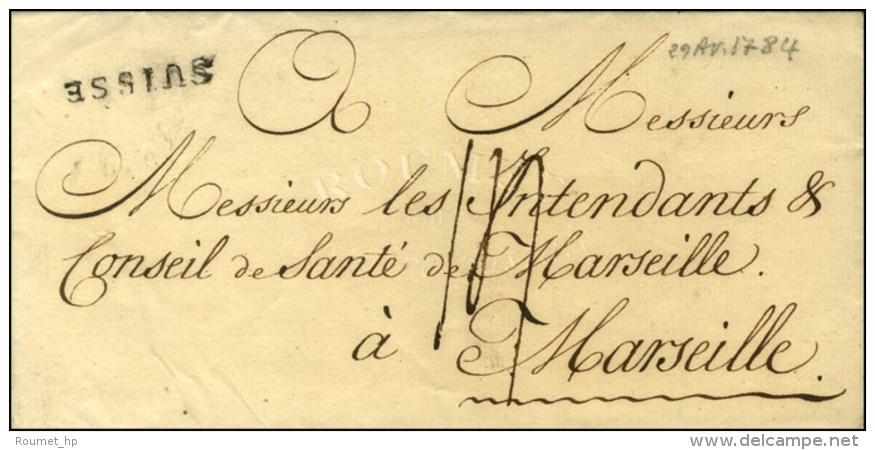 29 Av. 1784
SUISSE
A Messieurs
Messieurs les Intendants &
Conseil de Santé de Marseille.
à Marseille.
Roumet_hp
delcampe.net